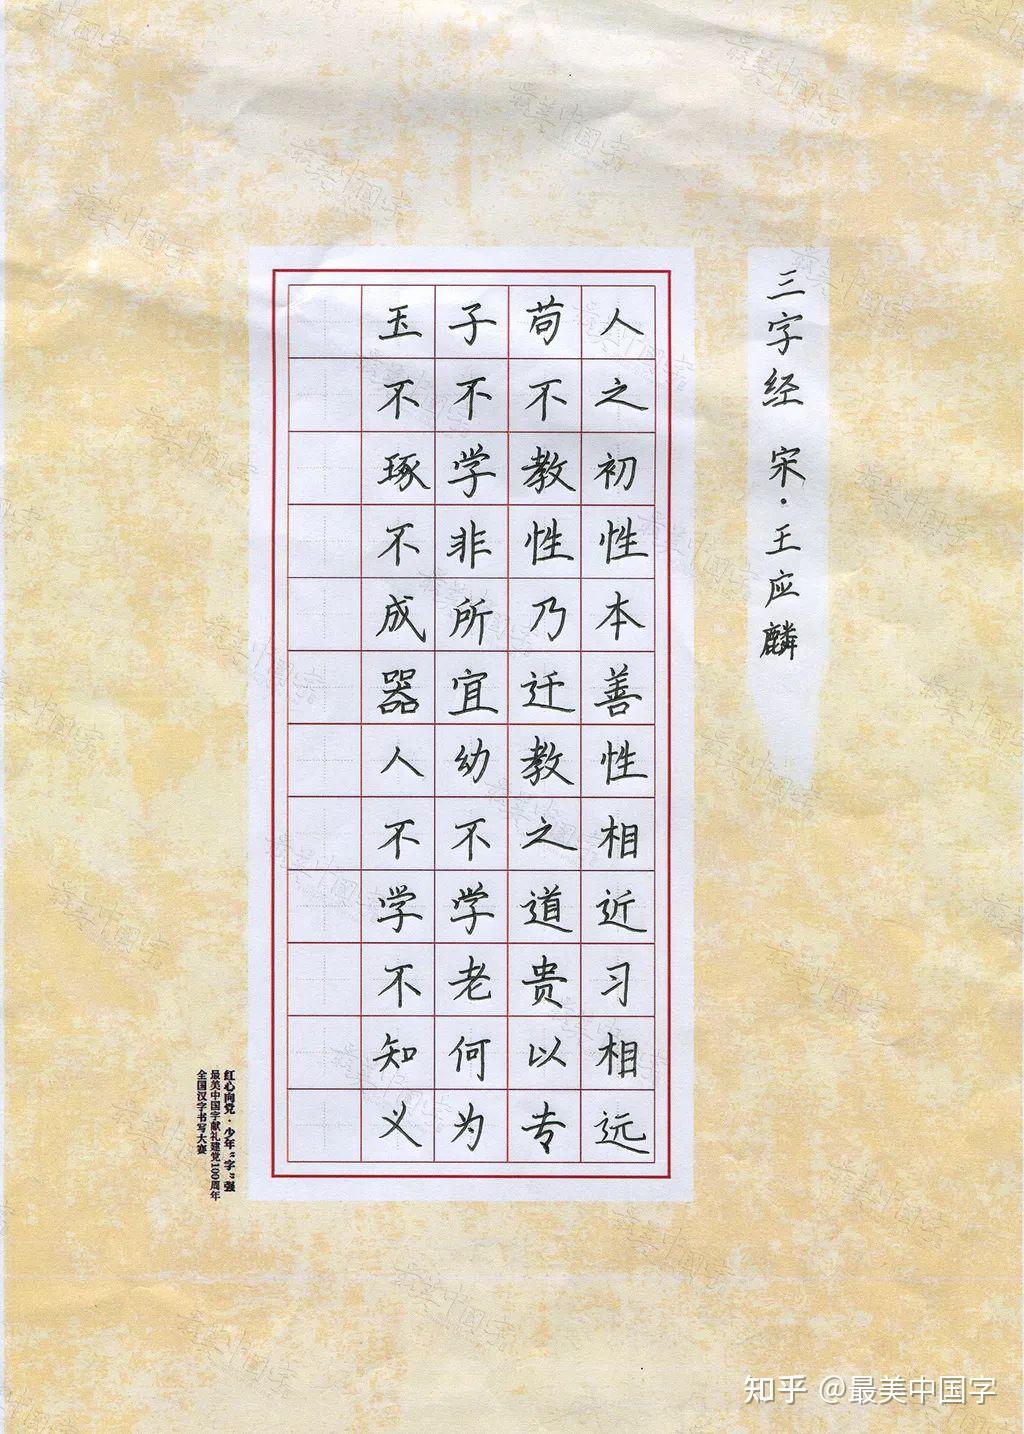 三字经 宋·王应麟
人之初性本善性相近习相远
苟不教性乃迁教之道贵以专
子不学非所宜幼不学老何为
玉不琢不成器人不学不知义
红心向党·少年“字”强
最美中国字献礼建党100周年
全国汉字书写大赛
知乎 @最美中国字